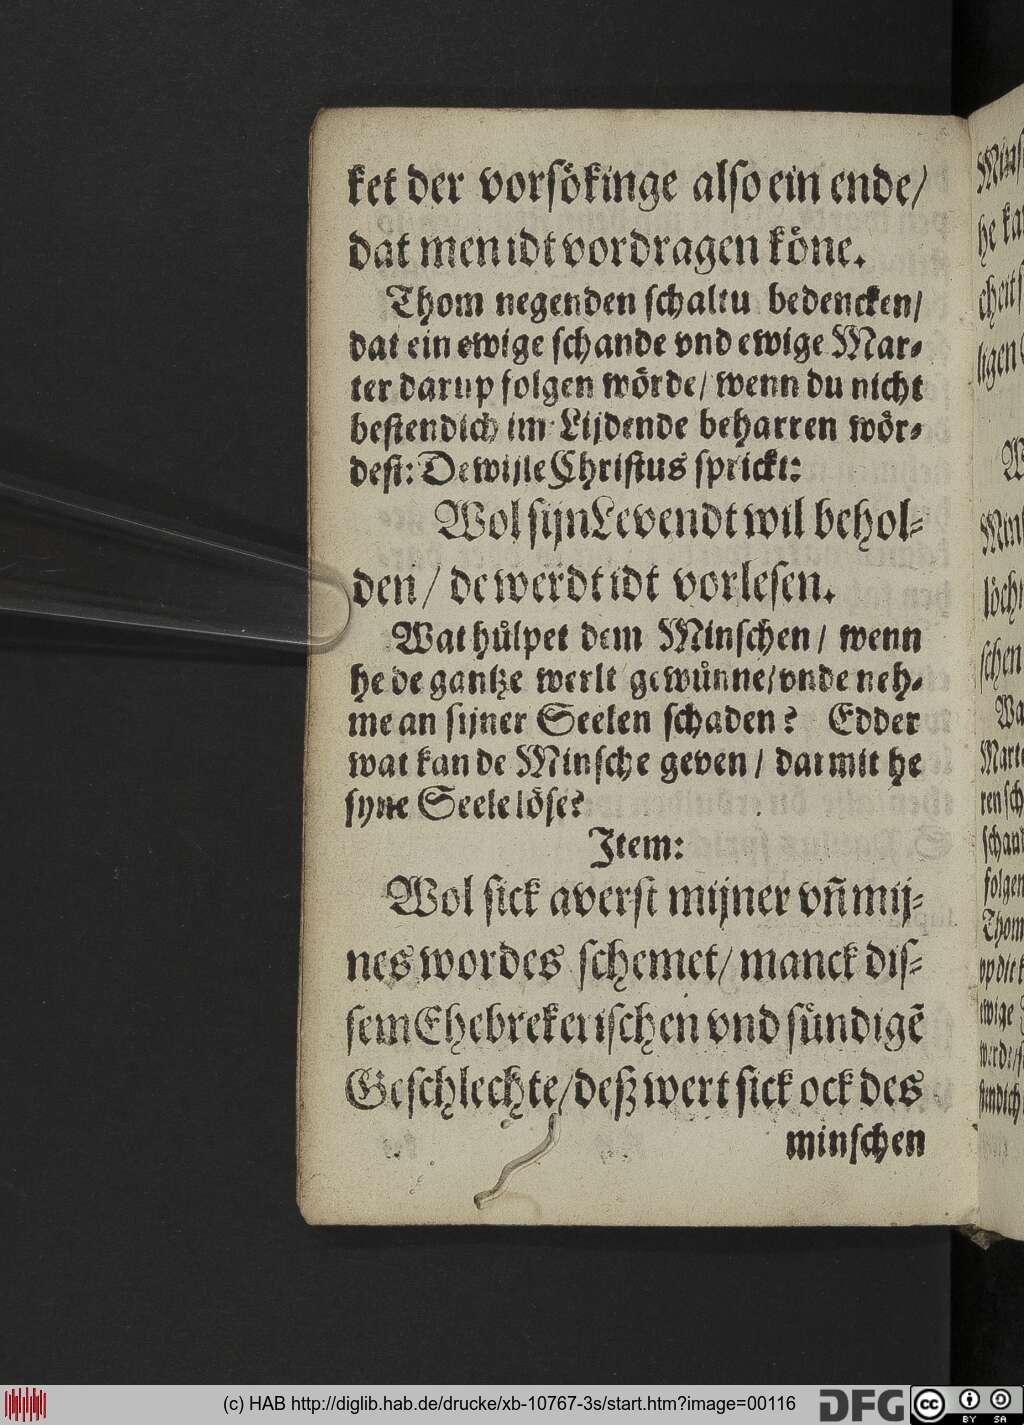 ket der vorsökinge also ein ende/
dat men idt vordragen köne.
Thom negenden schaltu bedencken/
dat ein ewige schande vnd ewige Mar-
ter darup folgen wörde/ wenn du nicht
bestendich im Lijdende beharren wör-
dest: Dewijle Christus sprickt:
Wol sijn Levendt wil behol-
den/ de werdt idt vorlesen.
Wat hůlpet dem Minschen/ wenn
he de gantze werlt gewůnne/ vnde neh-
me an sijner Seelen schaden? Edder
wat kan de Minsche geven/ darmit he
syne Seele löse?
Item:
Wol sick averst mijner vñ mij-
nes wordes schemet/ manck dis-
sem Ehebrekerischen vnd sůndigẽ
Geschlechte/ deß wert sick ock des
minschen
(c) HAB http://diglib.hab.de/drucke/xb-10767-3s/start.htm?image=00116
DFG
cc BY SA